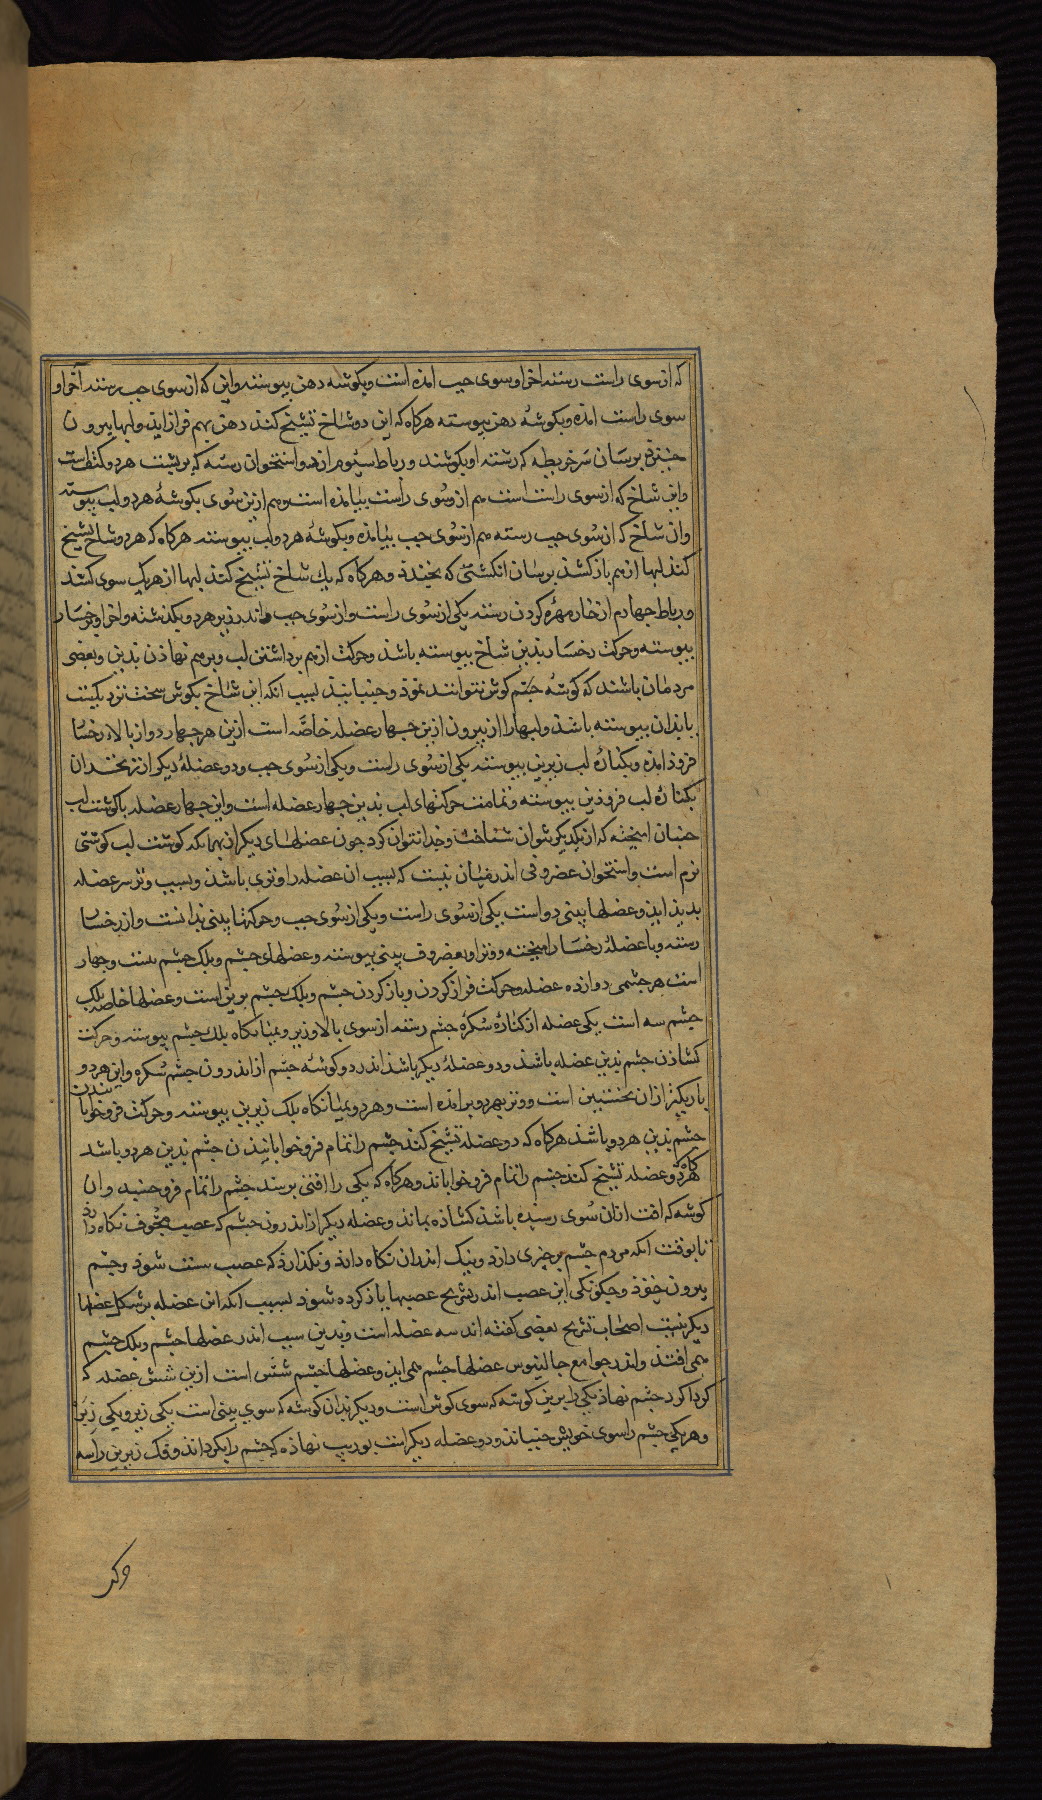 که از سوی راست رسته اخر او سوی جب امذه است و بکوشه دهن بیوسته و این که از سوی جب رسته اخر او
سوی راست امذه و بکوشهٔ دهن بیوسته هرکاه که این دو شاخ تشنج کند دهن بهم فراز اید و لبها بیرون
جنبذ برسان سر خریطه که رشته او بکوشند و رباط سیوم از دو استخوان رسته که بر بشت هر دو کتف است
و این شاخ که از سوی راست است هم از سوی راست بیامذه است و هم ازین سوی بکوشهٔ هر دو لب بیوسته
و ان شاخ که از سوی جب رسته هم از سوی جب بیامذه و بکوشهٔ هر دو لب بیوسته هرکاه که هر دو شاخ تشنج
کند لبها از هم باز کشذ برسان انکشتی که بخندذ و هرکاه که یک شاخ تشنج کند لبها از هر یک سوی کشد
و رباط جهارم از خار مهرهٔ کردن رسته یکی از سوی راست و از سوی جب و اندر زیر هر دو بکذشته و اخر او برخسار
بیوسته و حرکت رخسار بذین شاخ بیوسته باشذ و حرکت از هم برداشتن لب و بر هم نهاذن بذین و بعضی
مردمان باشند که کوشه جشم کوش نتوانند نموذ و جنبانیذ بسبب انکه این شاخ بکوش سخت نزدیکست
یا بذان بیوسته باشذ و لبها را از بیرون ازین جهار عضله خاصه است ازین هر جهار دو از بالا رخسا
فروذ امذه و بکنارهٔ لب زبرین بیوسته یکی از سوی راست و یکی از سوی جب و دو عضلهٔ دیکر از زنخدان
بکنارهٔ لب فروذین بیوسته و تمامت حرکتهای لب بذین جهار عضله است و این جهار عضله با کوشت لب
جنان امیخته که از یکدیکر نتوان شناخت و جدا نتوان کرد جون عضلهای دیکر از بهر انکه کوشت لب کوشتی
نرم است و استخوان غضروفی اندر میان نیست که بسبب ان عضله را وتری باشذ و بسبب وتر سر عضله
بدید ایذ و عضلها بینی دو است یکی از سوی راست و یکی از سوی جب و حرکتها بینی بذانست و از رخسا
رسته و با عضلهٔ رخسار امیخته و وتر او بغضروف بینی بیوسته و عضلهای جشم و بلک جشم بیست و جهار
است هر جشمی دوازده عضله و حرکت فراز کردن و باز کردن جشم و بلک جشم برین است و عضلها خاصه بلک
جشم سه است یکی عضله از کنارهٔ سکرهٔ جشم رسته از سوی بالا و زیر و بمیانکاه بلک جشم بیوسته و حرکت
کشاذن جشم بذین عضله باشذ و دو عضلهٔ دیکر باشذ اندر دو کوشهٔ جشم از اندرون جشم سکره و این هر دو
باریکتر از ان نخستین است و وتر بهر دو برامذه است و هر دو بمیانکاه بلک زیرین بیوسته و حرکت فروخوابانیدن
جشم بذین هر دو باشذ هرکاه که دو عضله تشنج کند جشم را تمام فروخوابانیذن جشم بذین هر دو باشد
کاه دو عضله تشنج کند جشم را تمام فروخواباند و هرکاه که یکی را افتی برسد جشم را تمام فروجنبد و ان
کوشه که افت از ان سوی رسیده باشذ کشاذه بماند و عضله دیکر از اندرون جشم که عصب مجوف نکاه دارذ
تا بوقت انکه مردم جشم بر جیزی دارد و نیک اندران نکاه دارذ و نکذارذ که عصب سست شود و جشم
بیرون خیزذ و جکونکی این عصب اندر تشریح عصبها یاذ کرده شوذ بسبب انکه این عضله بر شکل عضلها
دیکر نیست اصحاب تشریح بعضی کفته اند سه عضله است و بدین سبب اندر عضلها جشم و بلک جشم
می افتد و اندر جوامع جالینوس عضلها جشم می ایذ و عضلها جشم شش است ازین شش عضله که
کردا کرد جشم نهاذ یکی را برین کوشه که سوی کوش است و دیکر بذان کوشه که سوی بینی است یکی زبر و یکی زیر
و هر یکی جشم را سوی خویش جنباند و دو عضله دیکر است بوریب نهاذه که جشم را بکرداند و فک زبرین را سه
وکر